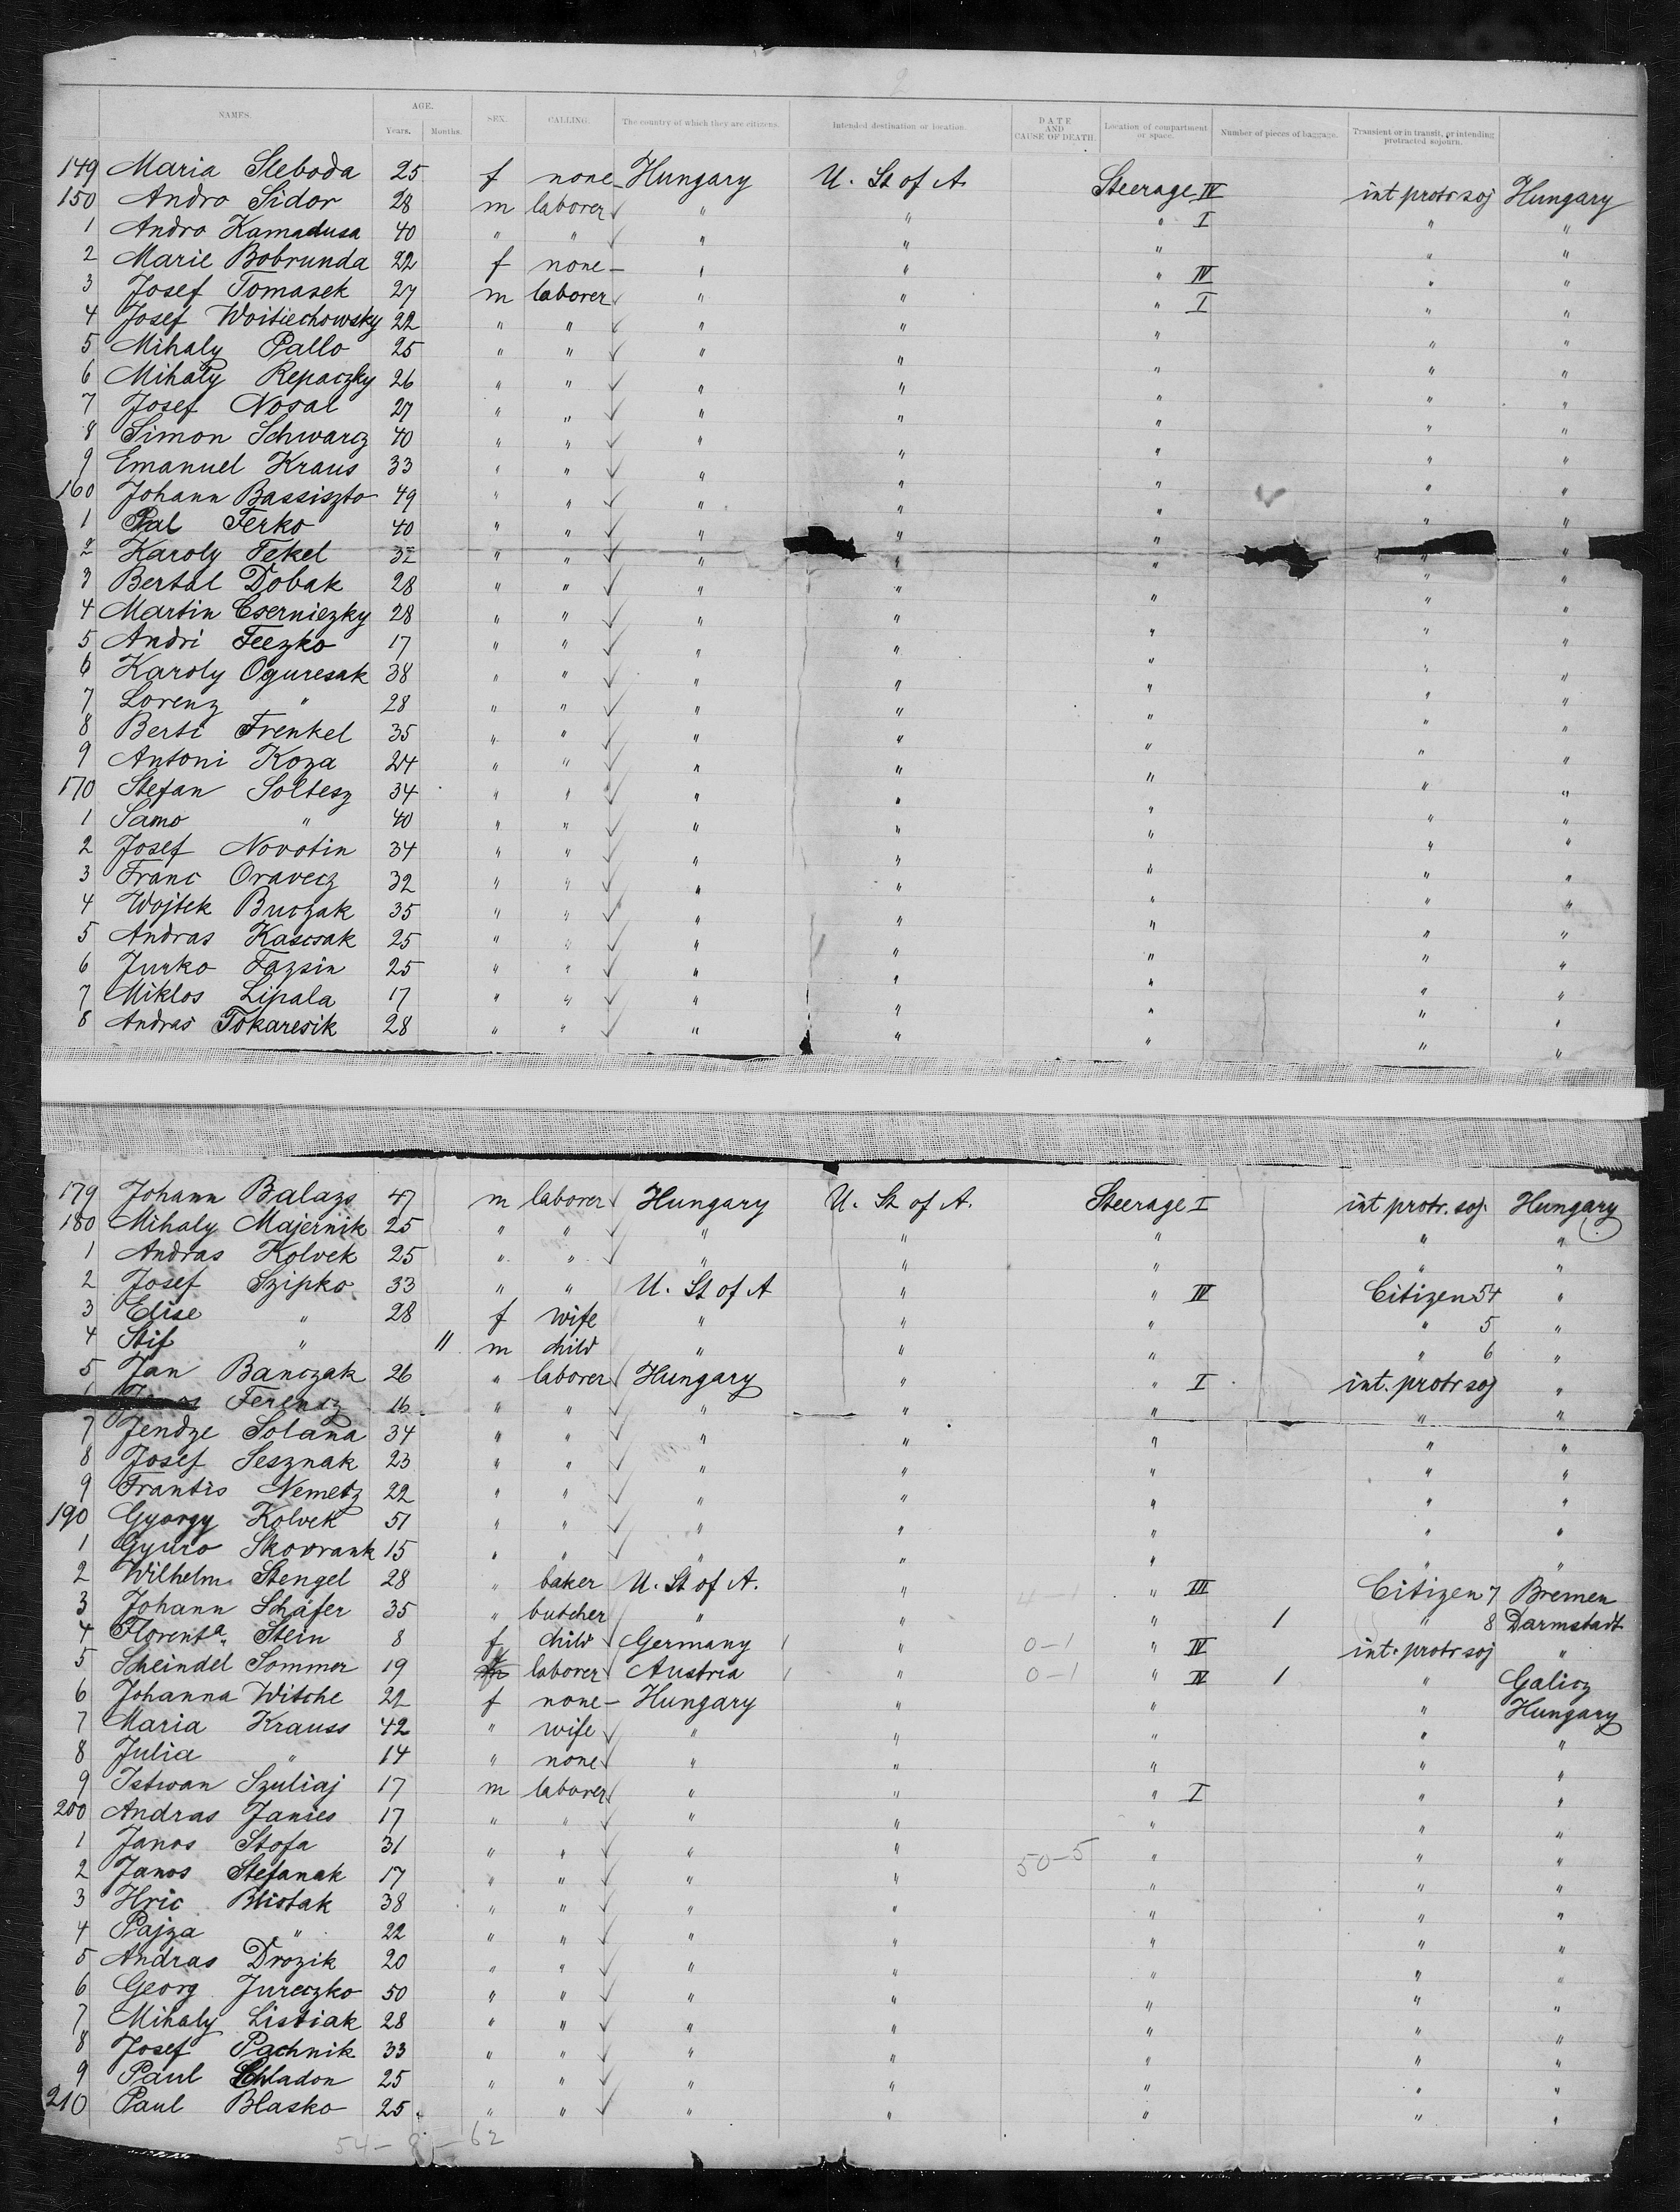 NAMES. AGE. Years. Months. SEX. CALLING. The country of which they are citizens. Intended destination or location. DATE AND CAUSE OF DEATH. Location of compartment or space. Number of pieces of baggage. Transient or in transit, or intending protracted sojourn.
149 Maria Sleboda 25 f none – Hungary U. St of A. Steerage IV int protr soj Hungary
150 Andro Sidor 28 m laborer " " " I " "
1 Andro Kamadusa 40 " " " " " " "
2 Marie Bobrunda 22 f none – " " " IV " "
3 Josef Tomasek 27 m laborer " " " I " "
4 Josef Woitiechowsky 22 " " " " " " "
5 Mihaly Pallo 25 " " " " " " "
6 Mihaly Repaczky 26 " " " " " " "
7 Josef Nosal 27 " " " " " " "
8 Simon Schwarcz 40 " " " " " " "
9 Emanuel Kraus 33 " " " " " " "
160 Johann Bassiszto 49 " " " " " " "
1 Pal Ferko 40 " " " " " " "
2 Karoly Tekel 32 " " " " " " "
3 Bertal Dobak 28 " " " " " " "
4 Martin Cserniezky 28 " " " " " " "
5 Andri Feezko 17 " " " " " " "
6 Karoly Oguresak 38 " " " " " " "
7 Lorenz " 28 " " " " " " "
8 Berti Frenkel 35 " " " " " " "
9 Antoni Koza 24 " " " " " " "
170 Stefan Soltesz 34 " " " " " " "
1 Samo " 40 " " " " " " "
2 Josef Novotin 34 " " " " " " "
3 Franc Oravecz 32 " " " " " " "
4 Wojtek Buczak 35 " " " " " " "
5 Andras Kascsak 25 " " " " " " "
6 Jurko Fazsin 25 " " " " " " "
7 Miklos Lipala 17 " " " " " " "
8 Andras Tokaresik 28 " " " " " " "
179 Johann Balazs 47 m laborer Hungary U. St of A. Steerage I int protr. soj. Hungary
180 Mihaly Majernik 25 " " " " " " "
1 Andras Kolvek 25 " " " " " " "
2 Josef Szipko 33 " " U. St of A " " IV Citizen 54 "
3 Elise " 28 f wife " " " " 5 "
4 Stif " 11 m child " " " " 6 "
5 Jan Banczak 26 " laborer Hungary " " I int. protr soj "
Ferencz 16 " " " " " " "
7 Jendze Solana 34 " " " " " " "
8 Josef Sesznak 23 " " " " " " "
9 Frantis Nemetz 22 " " " " " " "
190 Gyorgy Kolvek 51 " " " " " " "
1 Gyuro Skovrank 15 " " " " " " "
2 Wilhelm Stengel 28 " baker U. St of A. " " III Citizen 7 Bremen
3 Johann Schäfer 35 " butcher " " " 1 " 8 Darmstadt
4 Florenta Stein 8 f child Germany " 0–1 " IV int. protr soj "
5 Scheindel Sommer 19 f laborer Austria " 0–1 " IV 1 " Galicz
6 Johanna Witche 22 f none – Hungary " " " Hungary
7 Maria Krauss 42 " wife " " " " "
8 Julia " 14 " none " " " " "
9 Istwan Szuliaj 17 m laborer " " " I " "
200 Andras Janies 17 " " " " " " "
1 Janos Stofa 31 " " " " 50–5 " " "
2 Janos Stefanak 17 " " " " " " "
3 Hric Blistak 38 " " " " " " "
4 Pajza " 22 " " " " " " "
5 Andras Drozik 20 " " " " " " "
6 Georg Jureczko 50 " " " " " " "
7 Mihaly Listiak 28 " " " " " " "
8 Josef Pachnik 33 " " " " " " "
9 Paul Chladon 25 " " " " " " "
210 Paul Blasko 25 " " " " " " "
54– 85–62